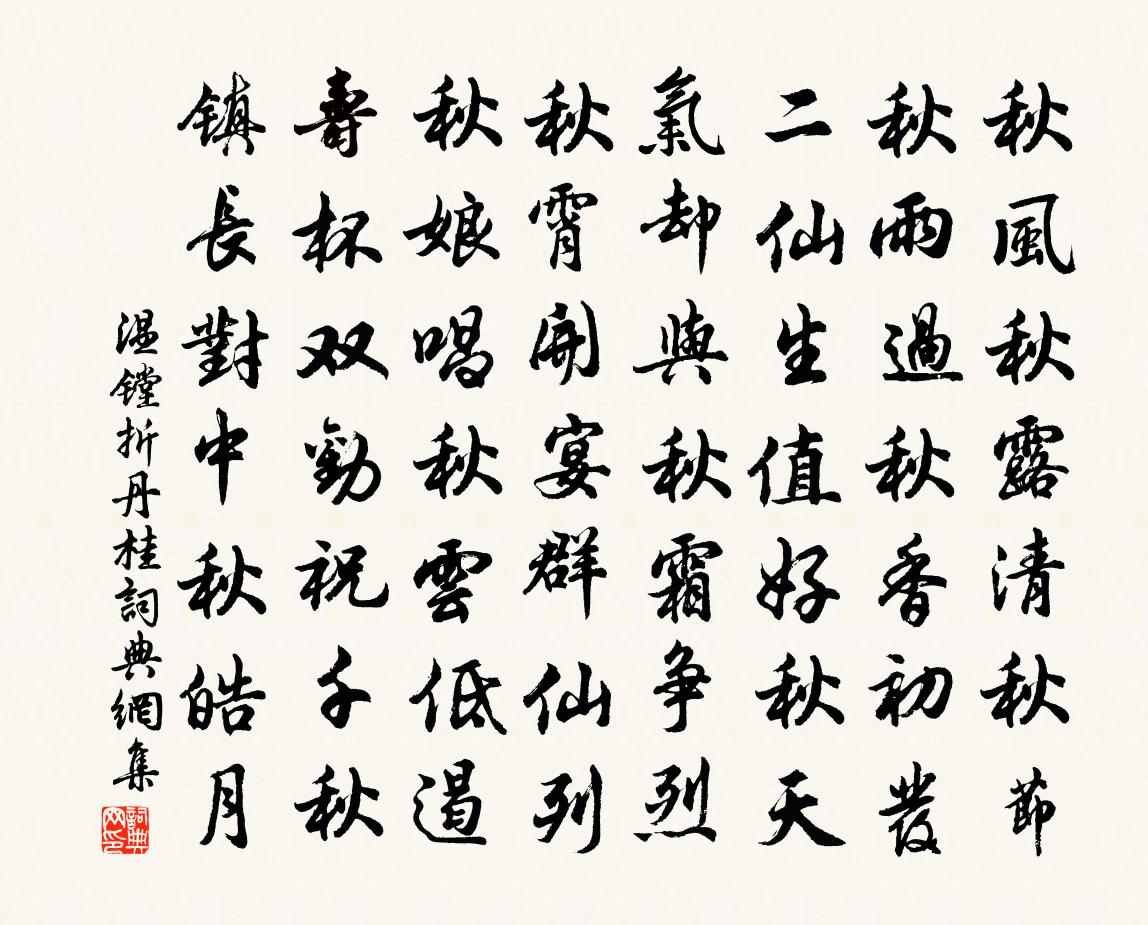 秋風秋露清秋節
秋雨過秋香初發
二仙生值好秋天
氣却與秋霜争烈
秋霄開宴群仙列
秋娘唱秋雲低遏
壽杯双勸祝千秋
鎮長對中秋皓月
温镗折丹桂詞典網集
詞典网印